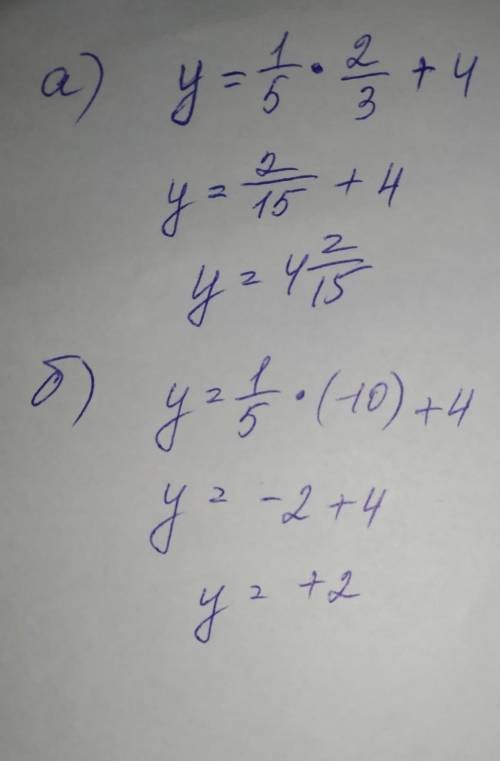 а) y = 1/5 · 2/3 + 4
y = 2/15 + 4
y = 4 2/15
б) y = 1/5 · (-10) + 4
y = -2 + 4
y = +2